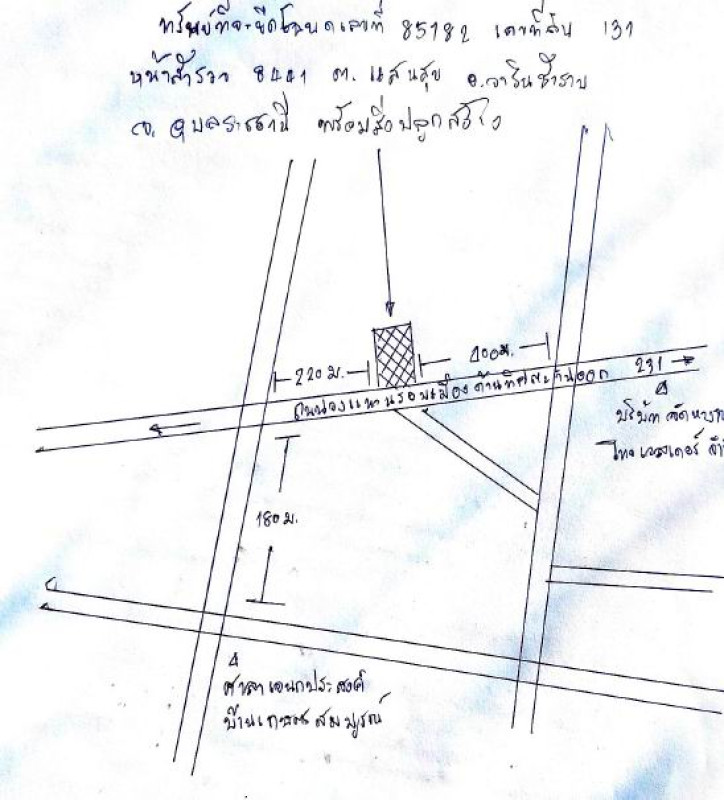 ทรัพย์ที่จะยึดโฉนดเลขที่ 85182 เลขที่ดิน 131
หน้าสำรวจ 8441 ต. แสนสุข อ.วารินชำราบ
จ. อุบลราชธานี พร้อมสิ่งปลูกสร้าง
220 ม.
400ม.
ถนนวงแหวนรอบเมืองด้านทิศตะวันออก 231
บริษัท จัดหางาน
ไทย เวลเดอร์ จำ
180 ม.
ศาลาเอนกประสงค์
บ้านเกษตรสมบูรณ์